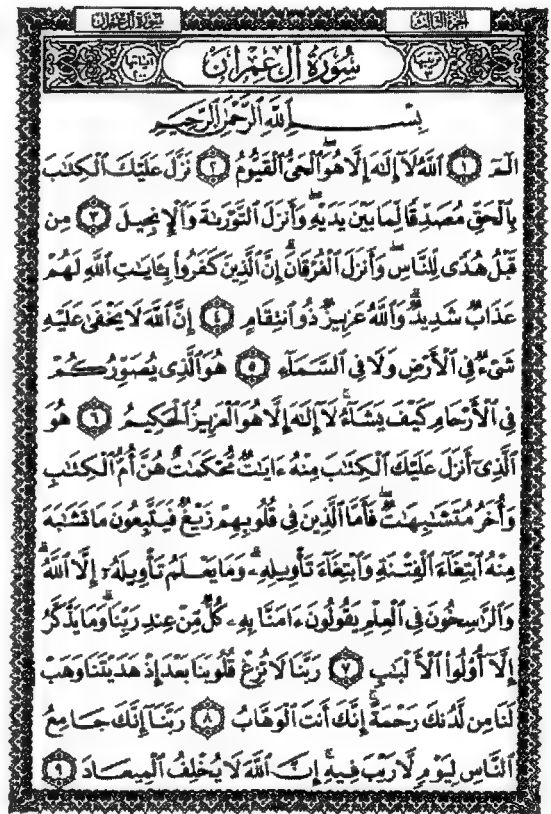 الجزء الثالث سورة آل عمران
ترتيبها ٣ سُورَةُ آلِ عِمْرَانَ آياتها ٢٠٠
بِسْمِ اللَّهِ الرَّحْمَٰنِ الرَّحِيمِ
الٓمٓ ١ ٱللَّهُ لَآ إِلَٰهَ إِلَّا هُوَ ٱلْحَىُّ ٱلْقَيُّومُ ٢ نَزَّلَ عَلَيْكَ ٱلْكِتَٰبَ
بِٱلْحَقِّ مُصَدِّقًا لِّمَا بَيْنَ يَدَيْهِ وَأَنزَلَ ٱلتَّوْرَىٰةَ وَٱلْإِنجِيلَ ٣ مِن
قَبْلُ هُدًى لِّلنَّاسِ وَأَنزَلَ ٱلْفُرْقَانَ ۗ إِنَّ ٱلَّذِينَ كَفَرُوا۟ بِـَٔايَٰتِ ٱللَّهِ لَهُمْ
عَذَابٌ شَدِيدٌ ۗ وَٱللَّهُ عَزِيزٌ ذُو ٱنتِقَامٍ ٤ إِنَّ ٱللَّهَ لَا يَخْفَىٰ عَلَيْهِ
شَىْءٌ فِى ٱلْأَرْضِ وَلَا فِى ٱلسَّمَآءِ ٥ هُوَ ٱلَّذِى يُصَوِّرُكُمْ
فِى ٱلْأَرْحَامِ كَيْفَ يَشَآءُ ۚ لَآ إِلَٰهَ إِلَّا هُوَ ٱلْعَزِيزُ ٱلْحَكِيمُ ٦ هُوَ
ٱلَّذِىٓ أَنزَلَ عَلَيْكَ ٱلْكِتَٰبَ مِنْهُ ءَايَٰتٌ مُّحْكَمَٰتٌ هُنَّ أُمُّ ٱلْكِتَٰبِ
وَأُخَرُ مُتَشَٰبِهَٰتٌ ۖ فَأَمَّا ٱلَّذِينَ فِى قُلُوبِهِمْ زَيْغٌ فَيَتَّبِعُونَ مَا تَشَٰبَهَ
مِنْهُ ٱبْتِغَآءَ ٱلْفِتْنَةِ وَٱبْتِغَآءَ تَأْوِيلِهِۦ ۗ وَمَا يَعْلَمُ تَأْوِيلَهُۥٓ إِلَّا ٱللَّهُ ۗ
وَٱلرَّٰسِخُونَ فِى ٱلْعِلْمِ يَقُولُونَ ءَامَنَّا بِهِۦ كُلٌّ مِّنْ عِندِ رَبِّنَا ۗ وَمَا يَذَّكَّرُ
إِلَّآ أُو۟لُوا۟ ٱلْأَلْبَٰبِ ٧ رَبَّنَا لَا تُزِغْ قُلُوبَنَا بَعْدَ إِذْ هَدَيْتَنَا وَهَبْ
لَنَا مِن لَّدُنكَ رَحْمَةً ۚ إِنَّكَ أَنتَ ٱلْوَهَّابُ ٨ رَبَّنَآ إِنَّكَ جَامِعُ
ٱلنَّاسِ لِيَوْمٍ لَّا رَيْبَ فِيهِ ۚ إِنَّ ٱللَّهَ لَا يُخْلِفُ ٱلْمِيعَادَ ٩